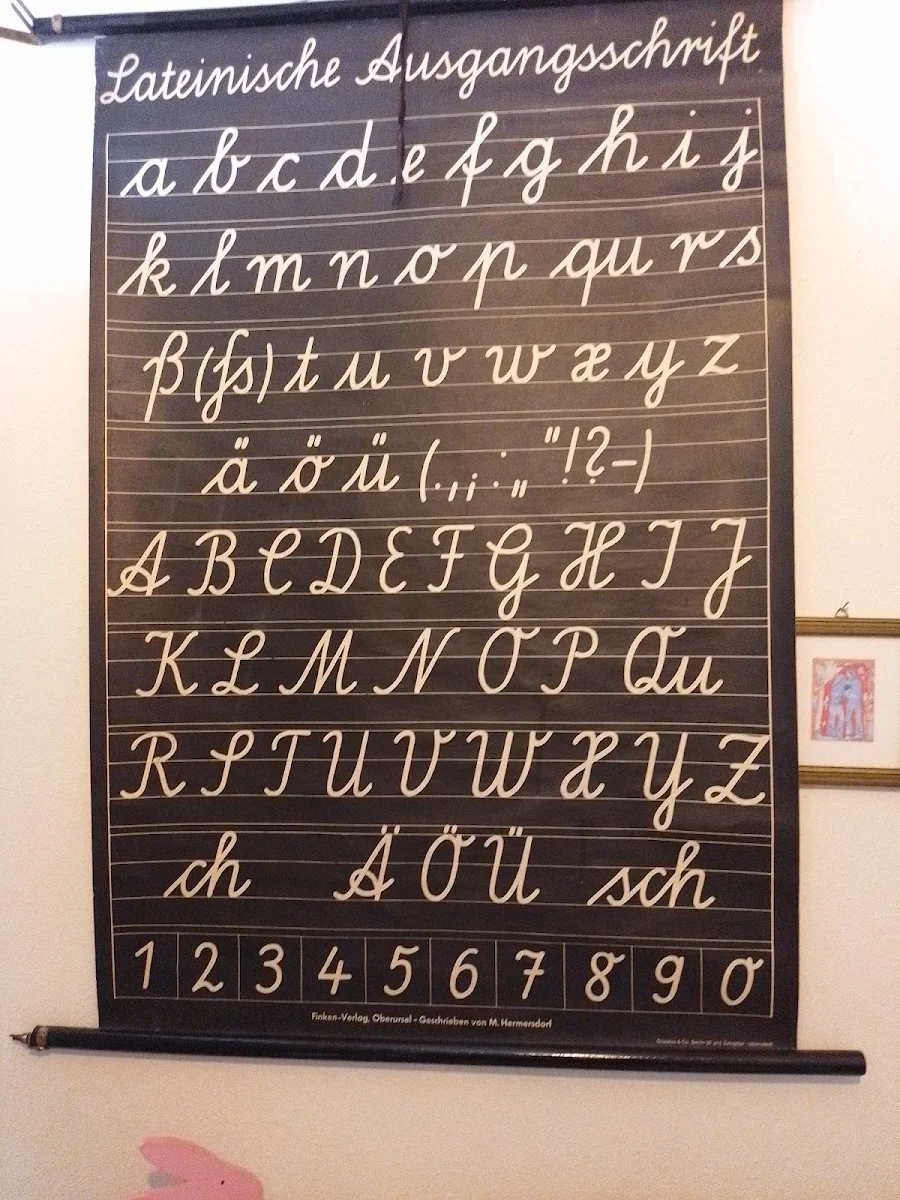 Lateinische Ausgangsschrift
a b c d e f g h i j
k l m n o p qu r s
ß (ſs) t u v w x y z
ä ö ü (. , ; : „ " ! ? –)
A B C D E F G H I J
K L M N O P Qu
R S T U V W X Y Z
ch Ä Ö Ü sch
1 2 3 4 5 6 7 8 9 0
Finken-Verlag, Oberursel - Geschrieben von M. Hermersdorf